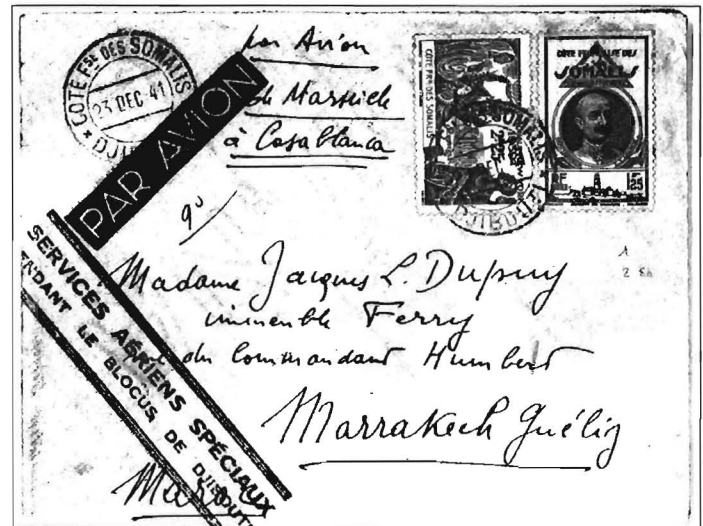 COTE Fse DES SOMALIS
23 DEC 41
par Avion
de Marseille
à Casablanca
PAR AVION
COTE FRse DES SOMALIS
COTE FRANÇAISE DES
SOMALIS
RF
1F25
SERVICES AÉRIENS SPÉCIAUX
PENDANT LE BLOCUS DE DJIBOUTI
Madame Jacques L. Dupuy
immeuble Ferry
du Commandant Humbert
Marrakech Guéliz
Maroc